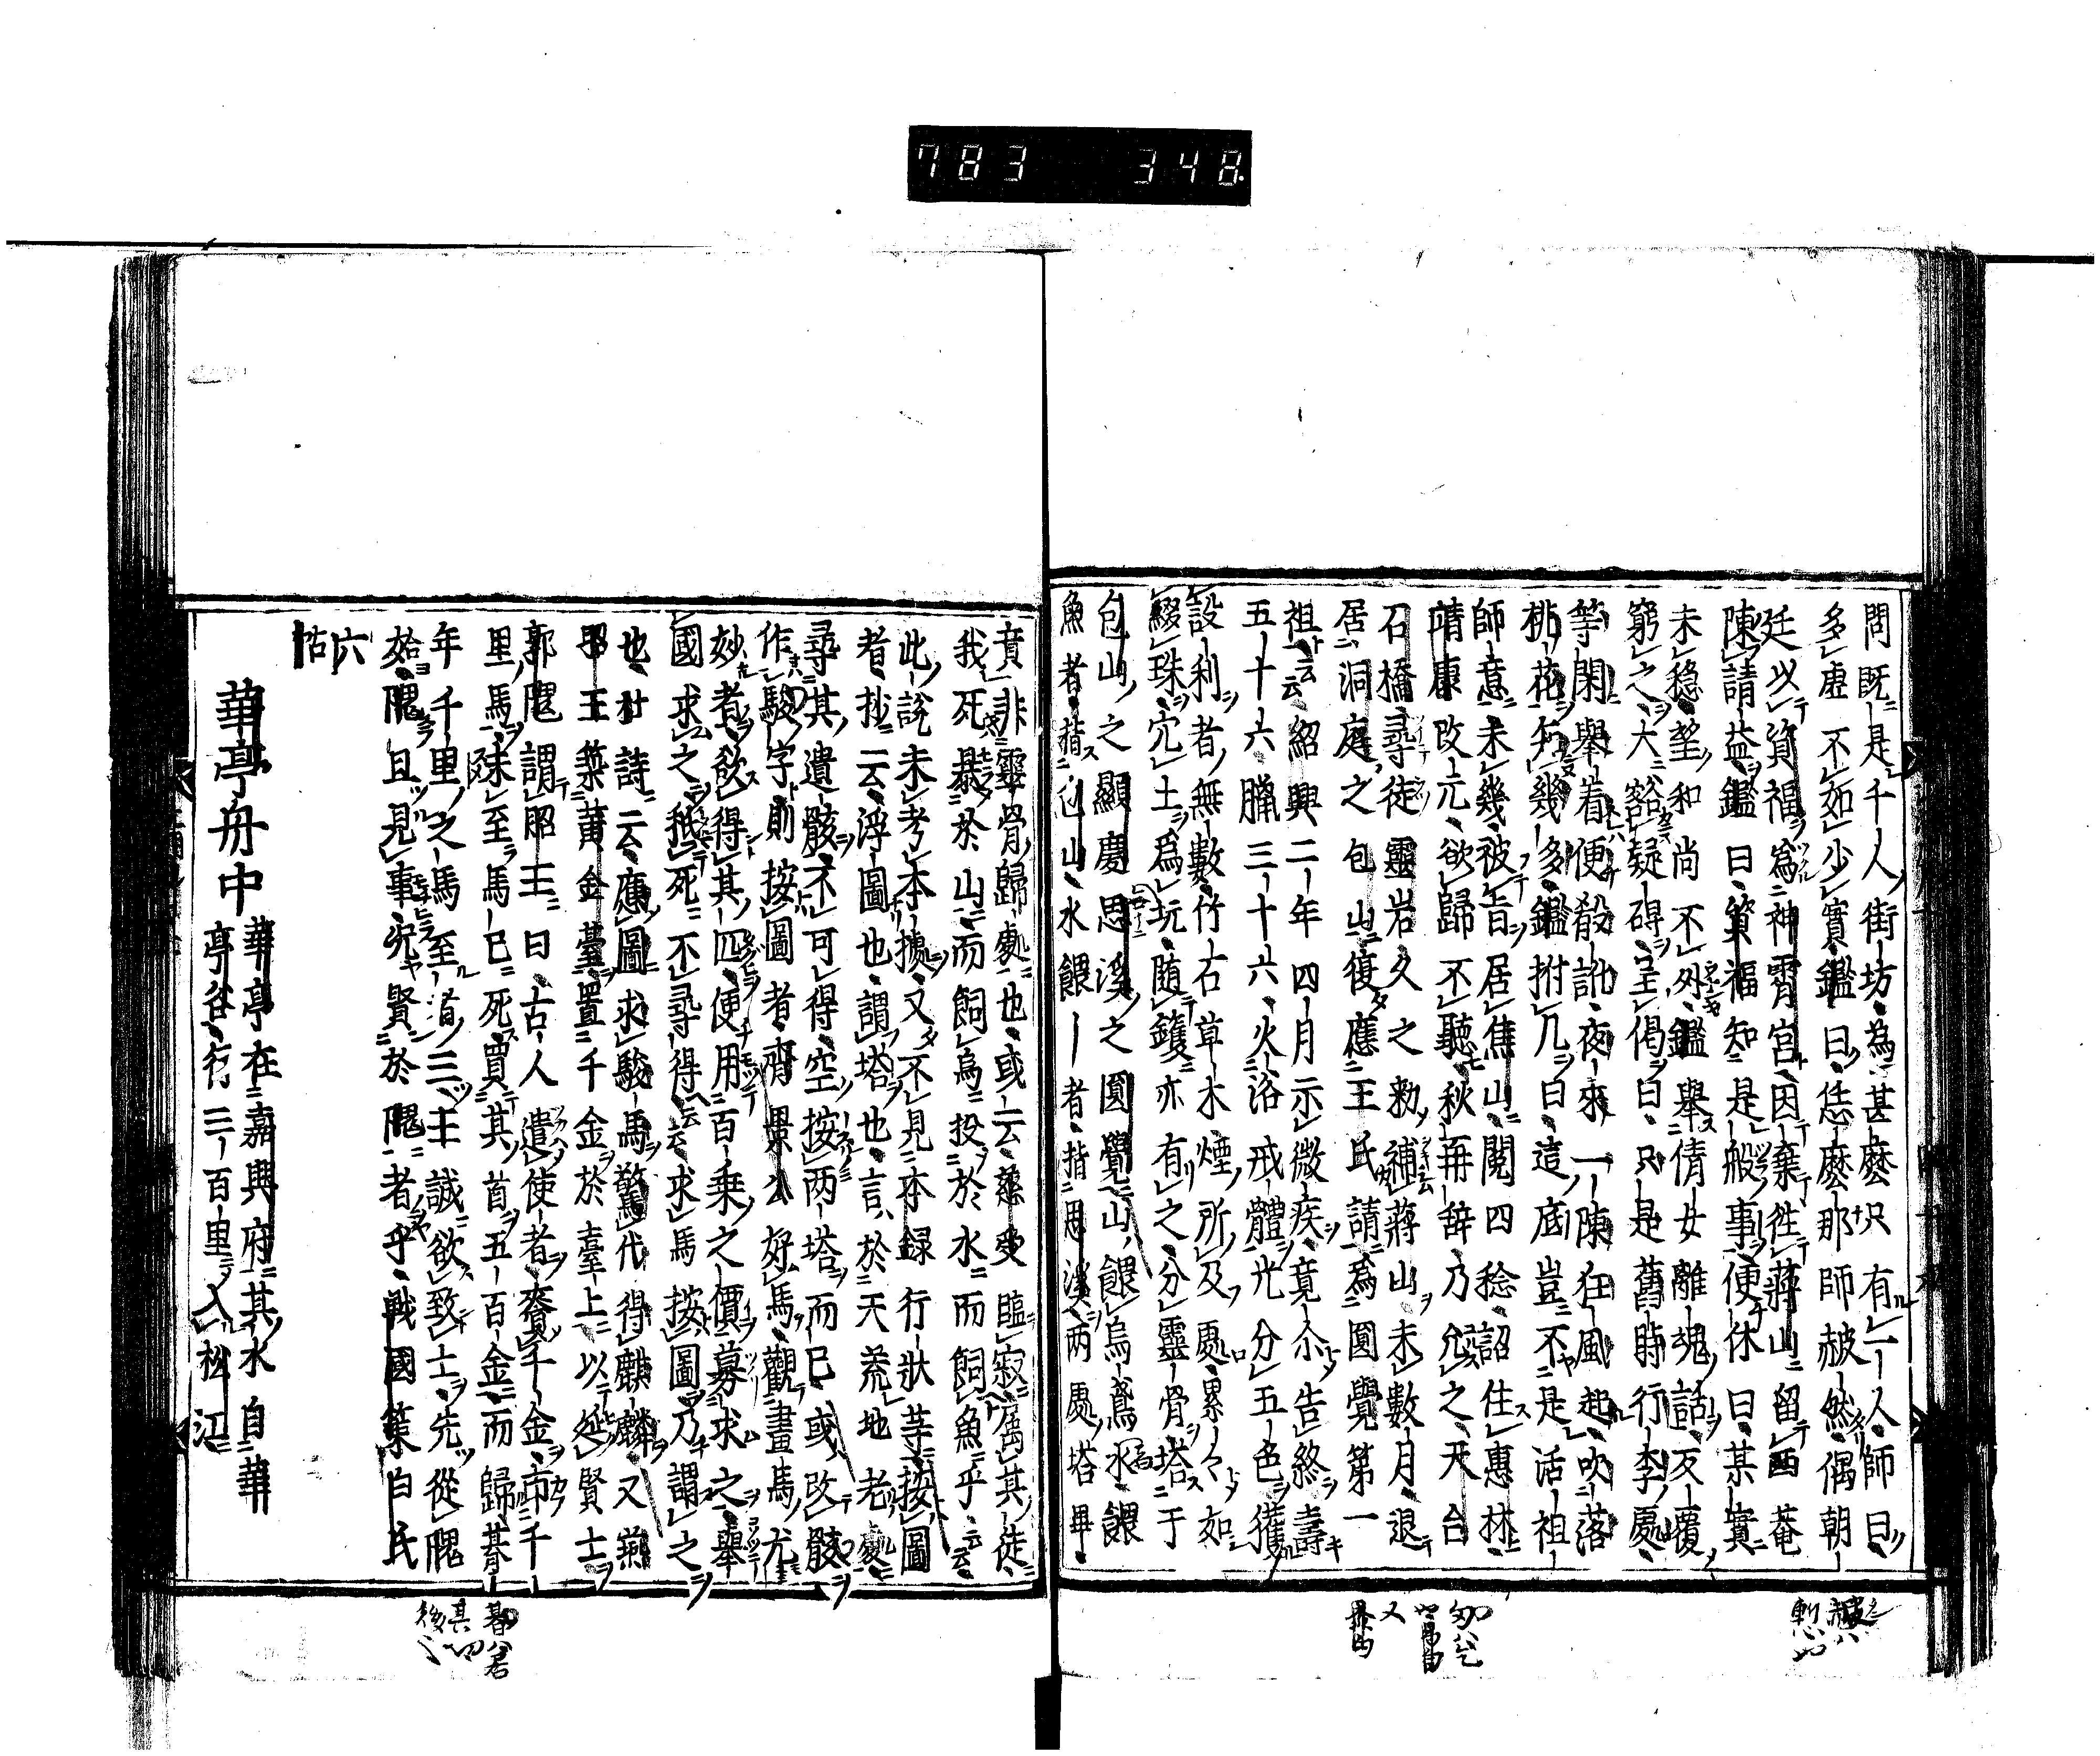 783 348
問既是千人街坊為甚麼只有一人師曰
多虛不如少實鑑曰恁麼那師赧然偶朝
廷以資福為神霄宮因棄徃蔣山留西菴
陳請益鑑曰資福知是般事便休曰某實
未穏望和尚不外鑑舉倩女離魂話反覆
窮之大豁疑碍呈偈曰只是舊時行李處
等閑舉着便殽訛夜來一陳狂風起吹落
桃花知幾多鑑拊几曰這底豈不是活祖
師意未幾被旨居焦山閲四稔詔住惠林
靖康改元欲歸不聽秋再辞乃允之天台
石橋尋徒靈岩久之勅補蔣山未數月退
居洞庭之包山復應王氏請為圓覺第一
祖云云紹興二年四月示微疾竟尒告終壽
五十六臘三十六火浴戒體光分五色獲
設利者無數竹石草木煙所及處累々如
綴珠穴土為坑随鑊亦有之分靈骨塔于
包山之顯慶思溪之圓覺山餵烏鳶水餵
魚者指包山水餵ー者指思溪両處塔畢
賁非靈骨歸處也或云慈受臨寂属其徒
我死暴於山而飼烏投於水而飼魚乎云云
此說未考本據又不見本録行狀䓁按圖
者抄云浮圖也謂塔也言於天荒地老處
尋其遺骸不可得空按両塔而已或改骸
作駿字則按圖者齊景公好馬觀畫馬尤
妙者欲得其匹便用百乗之價募求之舉
國求之秪死不尋得云云求馬按圖乃謂之
也杜詩云應圖求駿馬驚代得麒麟又燕
昭王築黄金臺置千金於臺上以延賢士
郭隗謂昭王曰古人遣使者賫千金市千
里馬未至馬已死買其首五百金而歸朞
年千里之馬至者三王誠欲致士先從隗
始隗且見事况賢於隗者乎戦國策白氏
六
帖
華亭舟中
華亭在嘉興府其水自華
亭谷行三百里入松江